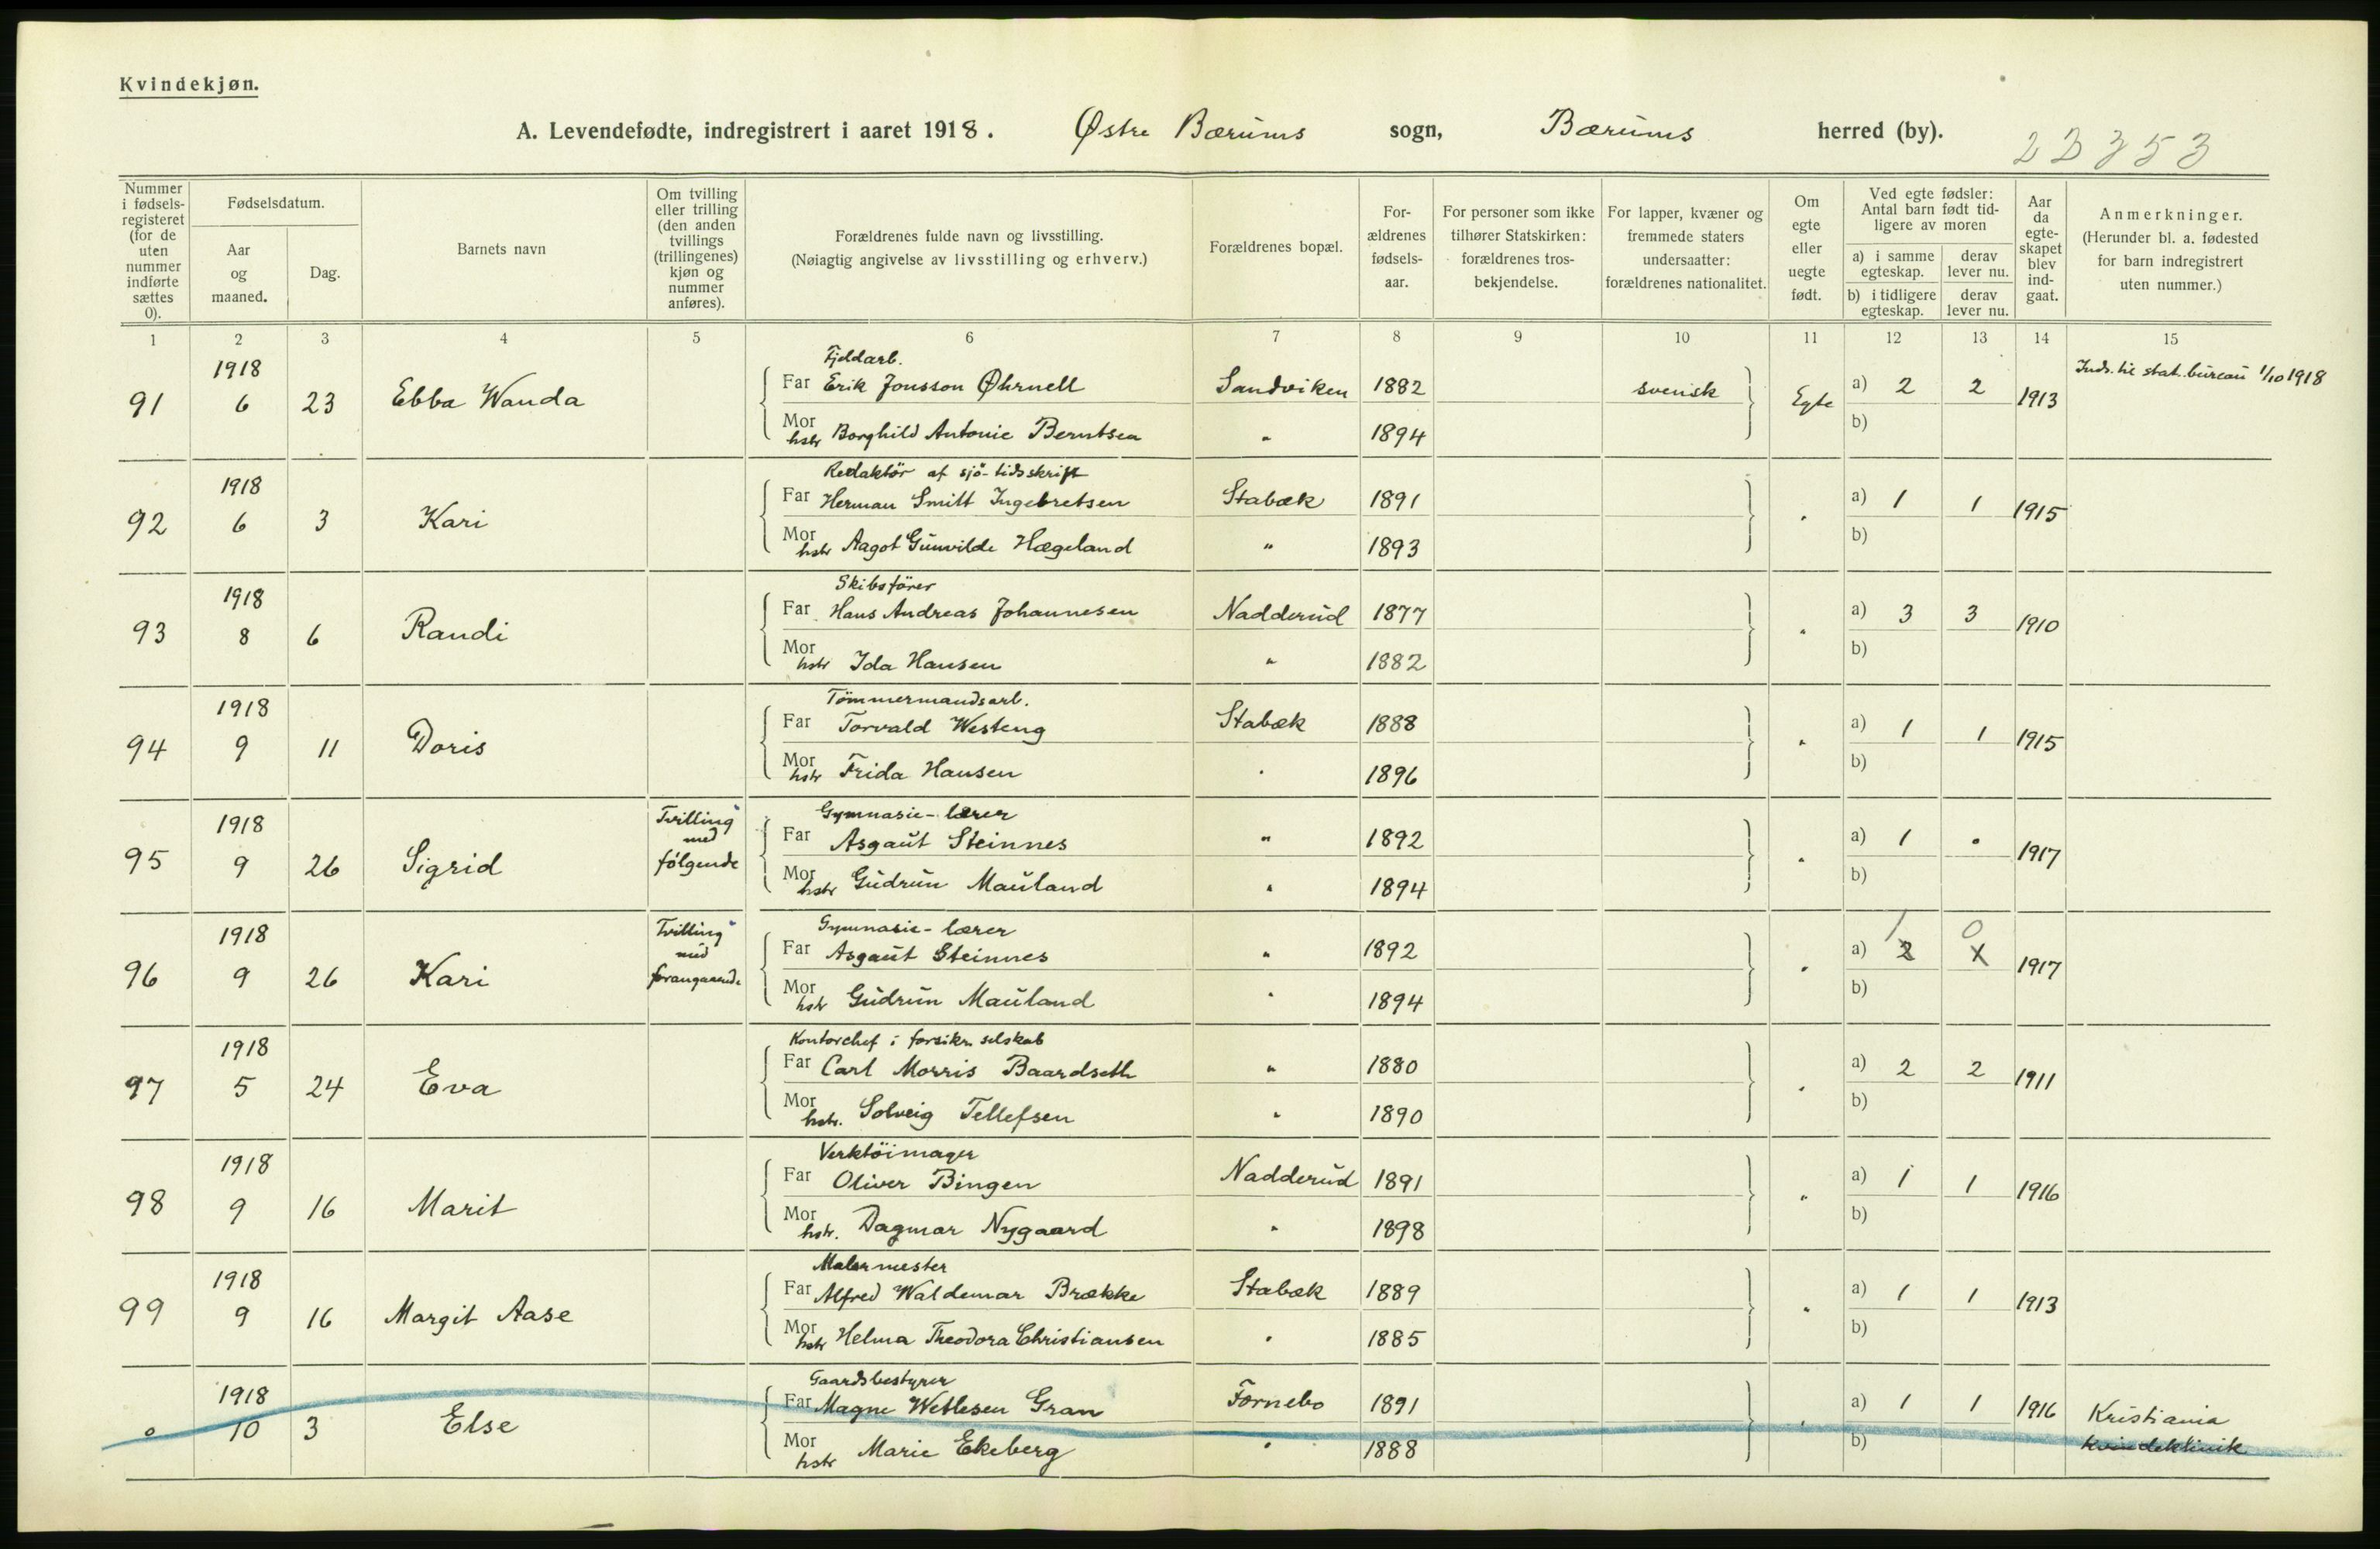 Kvindekjøn.
A. Levendefødte, indregistrert i aaret 1918. Østre Bærums sogn, Bærums herred (by). 22353
Nummer i fødsels-registeret (for de uten nummer indførte sættes 0).
Fødselsdatum.
Aar og maaned.
Dag.
Barnets navn
Om tvilling eller trilling (den anden tvillings (trillingenes) kjøn og nummer anføres).
Forældrenes fulde navn og livsstilling.
(Nøiagtig angivelse av livsstilling og erhverv.)
Forældrenes bopæl.
For-ældrenes fødsels-aar.
For personer som ikke tilhører Statskirken: forældrenes tros-bekjendelse.
For lapper, kvæner og fremmede staters undersaatter: forældrenes nationalitet.
Om egte eller uegte født.
Ved egte fødsler: Antal barn født tid-ligere av moren
a) i samme egteskap. derav lever nu.
b) i tidligere egteskap. derav lever nu.
Aar da egte-skapet blev ind-gaat.
Anmerkninger.
(Herunder bl. a. fødested for barn indregistrert uten nummer.)
1 2 3 4 5 6 7 8 9 10 11 12 13 14 15
1918 Fjeldarb. Inds. til stat. bureau 1/10 1918
91 6 23 Ebba Wanda Far Erik Jonsson Øhrnell Sandviken 1882 svensk Egte a) 2 2 1913
Mor hstr Borghild Antonie Berntsen " 1894 b)
1918 Redaktör af sjö-tidsskrift
92 6 3 Kari Far Herman Smitt Ingebretsen Stabæk 1891 " a) 1 1 1915
Mor hstr Aagot Gunvilde Hægeland " 1893 b)
1918 Skibsförer
93 8 6 Randi Far Hans Andreas Johannesen Nadderud 1877 " a) 3 3 1910
Mor hstr Ida Hansen " 1882 b)
1918 Tömmermandsarb.
94 9 11 Doris Far Torvald Westeng Stabæk 1888 " a) 1 1 1915
Mor hstr Frida Hansen " 1896 b)
1918 Tvilling med følgende Gymnasie-lærer
95 9 26 Sigrid Far Asgaut Steinnes " 1892 " a) 1 0 1917
Mor hstr Gudrun Mauland " 1894 b)
1918 Tvilling med forangaaende Gymnasie-lærer 1 0
96 9 26 Kari Far Asgaut Steinnes " 1892 " a) 2 X 1917
Mor hstr Gudrun Mauland " 1894 b)
1918 Kontorchef i forsikr. selskab
97 5 24 Eva Far Carl Morris Baardseth " 1880 " a) 2 2 1911
Mor hstr. Solveig Tellefsen " 1890 b)
1918 Verktöimager
98 9 16 Marit Far Oliver Bingen Nadderud 1891 " a) 1 1 1916
Mor hstr. Dagmar Nygaard " 1898 b)
1918 Malermester
99 9 16 Margit Aase Far Alfred Waldemar Brække Stabæk 1889 " a) 1 1 1913
Mor hstr Helma Theodora Christiansen " 1885 b)
1918 Gaardsbestyrer
0 10 3 Else Far Magne Wetlesen Gran Fornebo 1891 " a) 1 1 1916 Kristiania
Mor hstr Marie Ekeberg " 1888 b) kvindeklinik